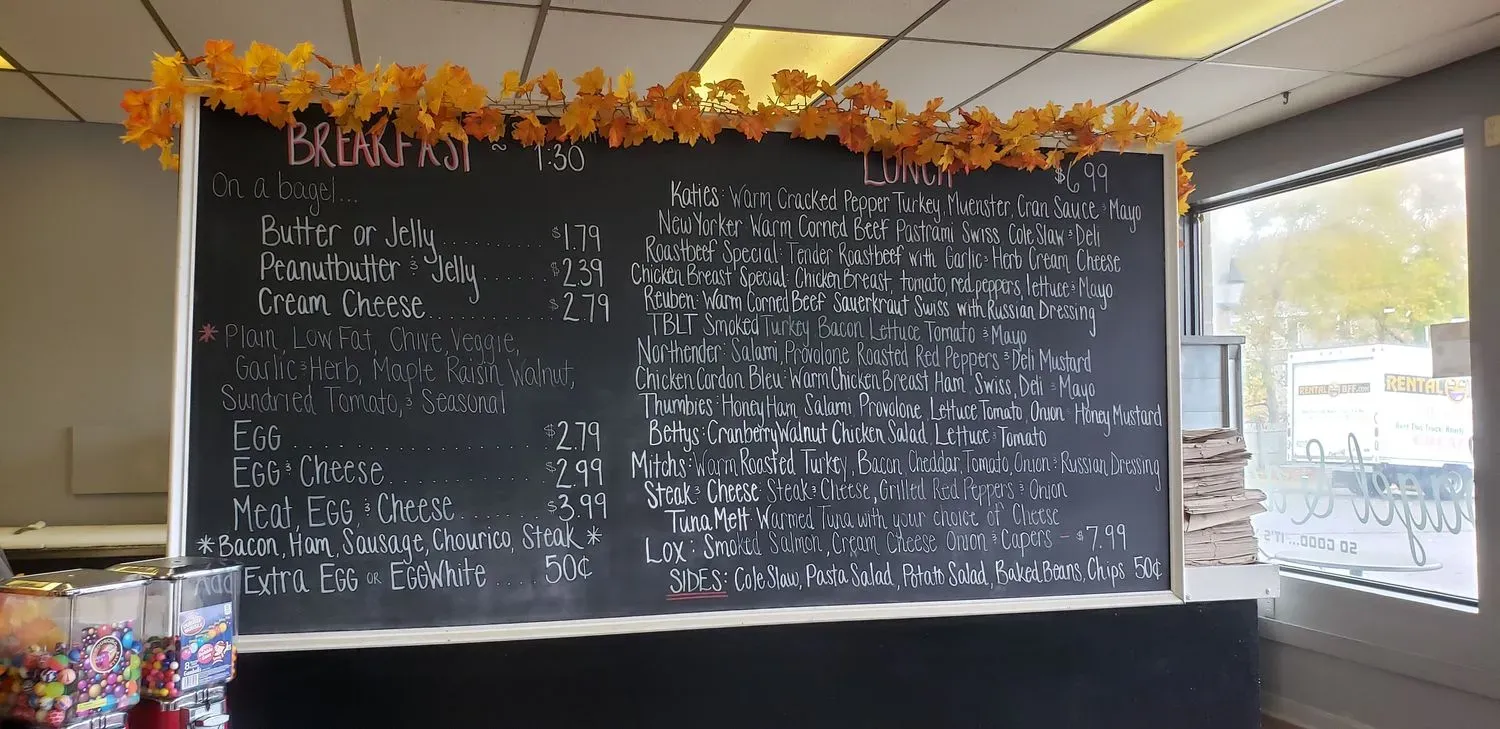 BREAKFAST ~ 1:30
On a bagel...
Butter or Jelly........... $1.79
Peanutbutter & Jelly...... $2.39
Cream Cheese.......... $2.79
* Plain, Low Fat, Chive, Veggie,
Garlic & Herb, Maple Raisin Walnut,
Sundried Tomato, & Seasonal
Egg................... $2.79
Egg & Cheese............ $2.99
Meat, Egg, & Cheese....... $3.99
*Bacon, Ham, Sausage, Chourico, Steak*
Add Extra Egg or Eggwhite.... 50¢
LUNCH $6.99
Katies: Warm Cracked Pepper Turkey, Muenster, Cran Sauce & Mayo
New Yorker Warm Corned Beef Pastrami Swiss Cole Slaw & Deli
Roastbeef Special: Tender Roastbeef with Garlic & Herb Cream Cheese
Chicken Breast Special: Chicken Breast, tomato, red peppers, lettuce & Mayo
Reuben: Warm Corned Beef Sauerkraut Swiss with Russian Dressing
TBLT Smoked Turkey Bacon Lettuce Tomato & Mayo
Northender: Salami, Provolone Roasted Red Peppers & Deli Mustard
Chicken Cordon Bleu: Warm Chicken Breast Ham, Swiss, Deli & Mayo
Thumbies: Honey Ham, Salami Provolone, Lettuce Tomato, Onion & Honey Mustard
Bettys: Cranberry Walnut Chicken Salad, Lettuce & Tomato
Mitchs: Warm Roasted Turkey, Bacon, Cheddar, Tomato, Onion & Russian Dressing
Steak & Cheese: Steak & Cheese, Grilled Red Peppers & Onion
Tuna Melt Warmed Tuna with your choice of Cheese
Lox: Smoked Salmon, Cream Cheese Onion & Capers - $7.99
SIDES: Cole Slaw, Pasta Salad, Potato Salad, Baked Beans, Chips 50¢
RENTAL BFF.com
RENTAL
SO GOOD... IT'S